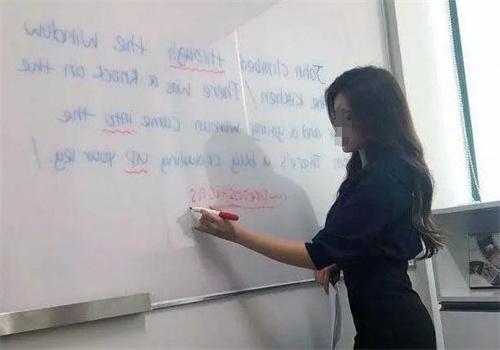 John climbed through the window
the kitchen / There was a knock on the
and a young woman come into the
There's a bug crawling up your leg /
prepositions